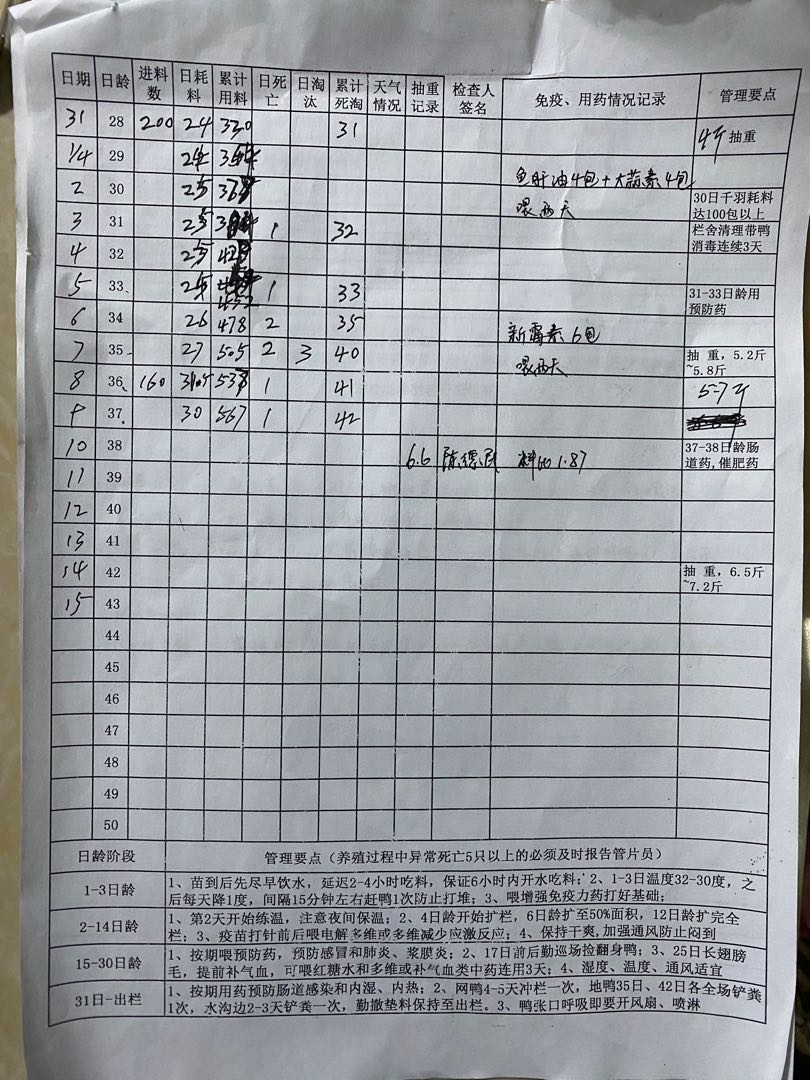 日期 日龄 进料数 日耗料 累计用料 日死亡 日淘汰 累计死淘 天气情况 抽重记录 检查人签名 免疫、用药情况记录 管理要点
31 28 200 24 330 31 4斤 抽重
1/4 29 24
鱼肝油4包+大蒜素4包
2 30 25 喂两天 30日千羽耗料
达100包以上
3 31 25 1 32 栏舍清理带鸭
消毒连续3天
4 32 25
5 33 25 452 1 33 31-33日龄用
预防药
6 34 26 478 2 35 新霉素6包
7 35 27 505 2 3 40 喂两天 抽 重，5.2斤
~5.8斤
8 36 160 538 1 41
9 37 30 567 1 42
10 38 6.6 料比1.87 37-38日龄肠
道药,催肥药
11 39
12 40
13 41
14 42 抽 重，6.5斤
~7.2斤
15 43
44
45
46
47
48
49
50
日龄阶段 管理要点（养殖过程中异常死亡5只以上的必须及时报告管片员）
1-3日龄 1、苗到后先尽早饮水，延迟2-4小时吃料，保证6小时内开水吃料；2、1-3日温度32-30度，之
后每天降1度，间隔15分钟左右赶鸭1次防止打堆；3、喂增强免疫力药打好基础；
2-14日龄 1、第2天开始练温，注意夜间保温；2、4日龄开始扩栏，6日龄扩至50%面积，12日龄扩完全
栏；3、疫苗打针前后喂电解多维或多维减少应激反应；4、保持干爽,加强通风防止闷到
15-30日龄 1、按期喂预防药，预防感冒和肺炎、浆膜炎；2、17日前后勤巡场捡翻身鸭；3、25日长翅膀
毛，提前补气血，可喂红糖水和多维或补气血类中药连用3天；4、湿度、温度、通风适宜
31日-出栏 1、按期用药预防肠道感染和内湿、内热；2、网鸭4-5天冲栏一次，地鸭35日、42日各全场铲粪
1次，水沟边2-3天铲粪一次，勤撒垫料保持至出栏。3、鸭张口呼吸即要开风扇、喷淋